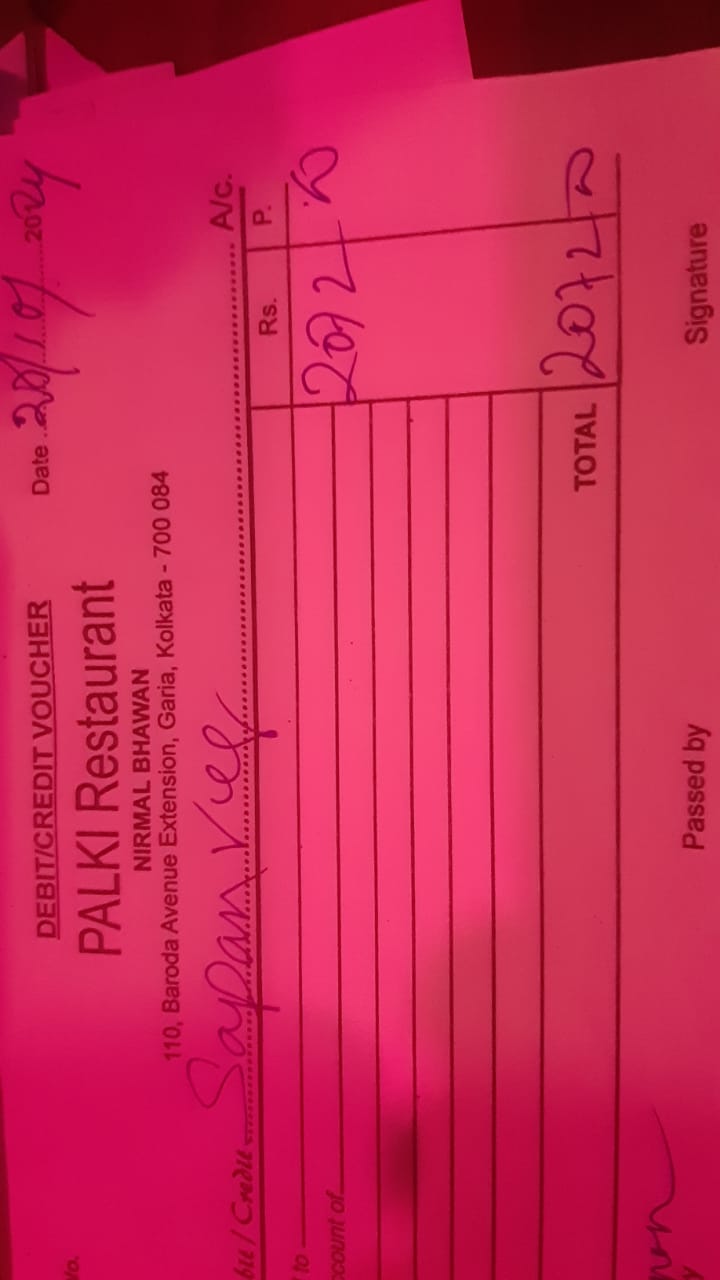 DEBIT/CREDIT VOUCHER
No.
Date 20/07/2024
PALKI Restaurant
NIRMAL BHAWAN
110, Baroda Avenue Extension, Garia, Kolkata - 700 084
Credit Sapan A/c.
Rs. P.
to 2072
ccount of
TOTAL 2072
Passed by Signature